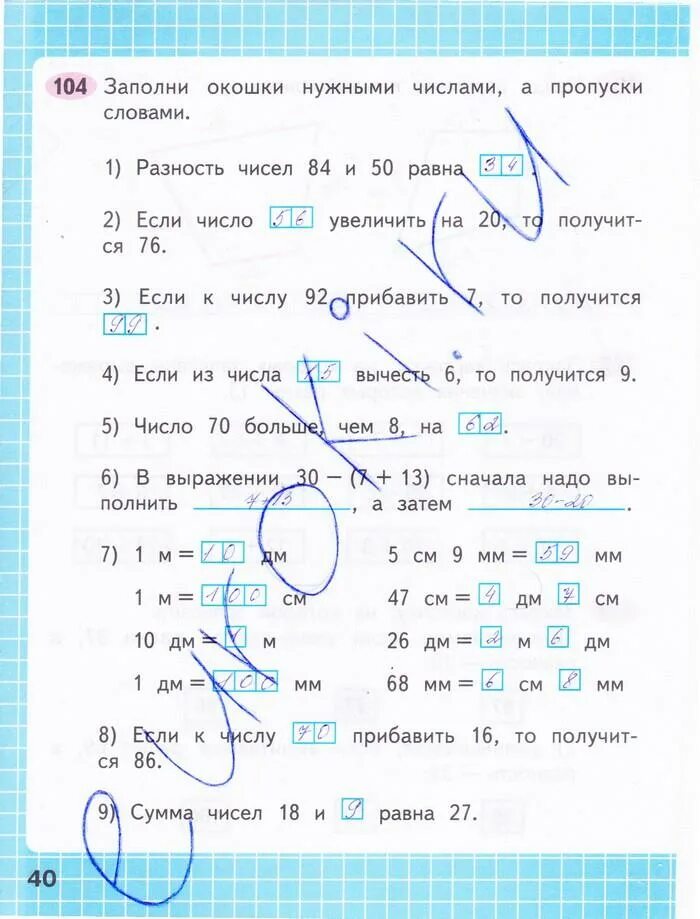 104 Заполни окошки нужными числами, а пропуски
словами.
1) Разность чисел 84 и 50 равна 34.
2) Если число 56 увеличить на 20, то получит-
ся 76.
3) Если к числу 92 прибавить 7, то получится
99.
4) Если из числа 15 вычесть 6, то получится 9.
5) Число 70 больше, чем 8, на 62.
6) В выражении 30 − (7 + 13) сначала надо вы-
полнить 7+13, а затем 30-20.
7) 1 м = 10 дм 5 см 9 мм = 59 мм
1 м = 100 см 47 см = 4 дм 7 см
10 дм = 1 м 26 дм = 2 м 6 дм
1 дм = 100 мм 68 мм = 6 см 8 мм
8) Если к числу 70 прибавить 16, то получит-
ся 86.
9) Сумма чисел 18 и 9 равна 27.
40